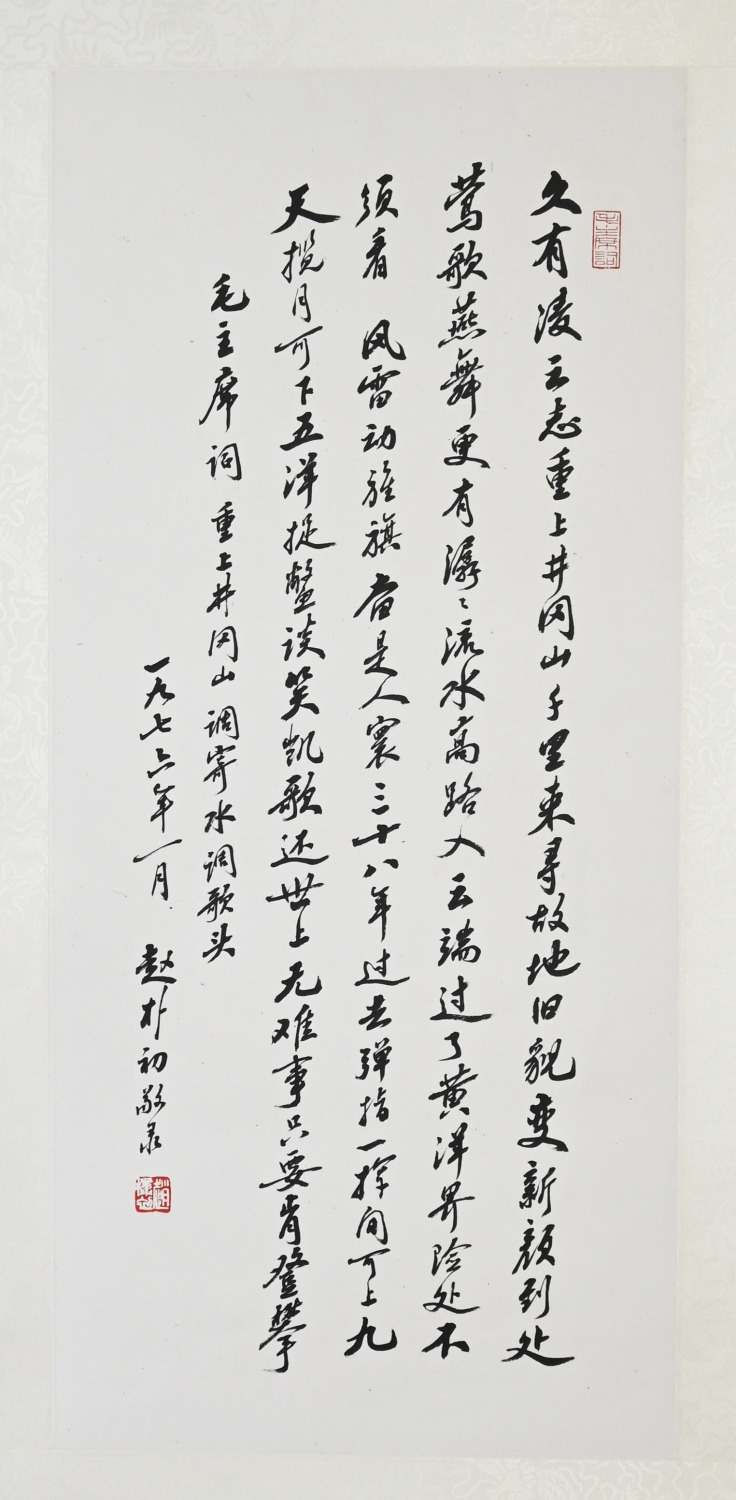 毛主席詞
久有凌云志重上井冈山千里来寻故地旧貌变新颜到处
莺歌燕舞更有潺〻流水高路入云端过了黄洋界险处不
须看 风雷动旌旗奋是人寰三十八年过去弹指一挥间可上九
天揽月可下五洋捉鳖谈笑凯歌还世上无难事只要肯登攀
毛主席词 重上井冈山 调寄水调歌头
一九七六年一月 赵朴初敬录